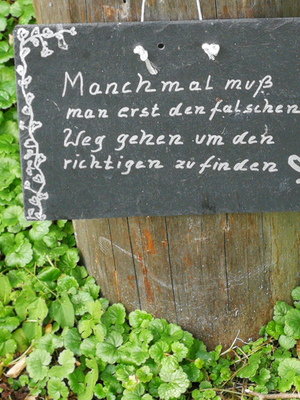 Manchmal muß
man erst den falschen
Weg gehen um den
richtigen zu finden